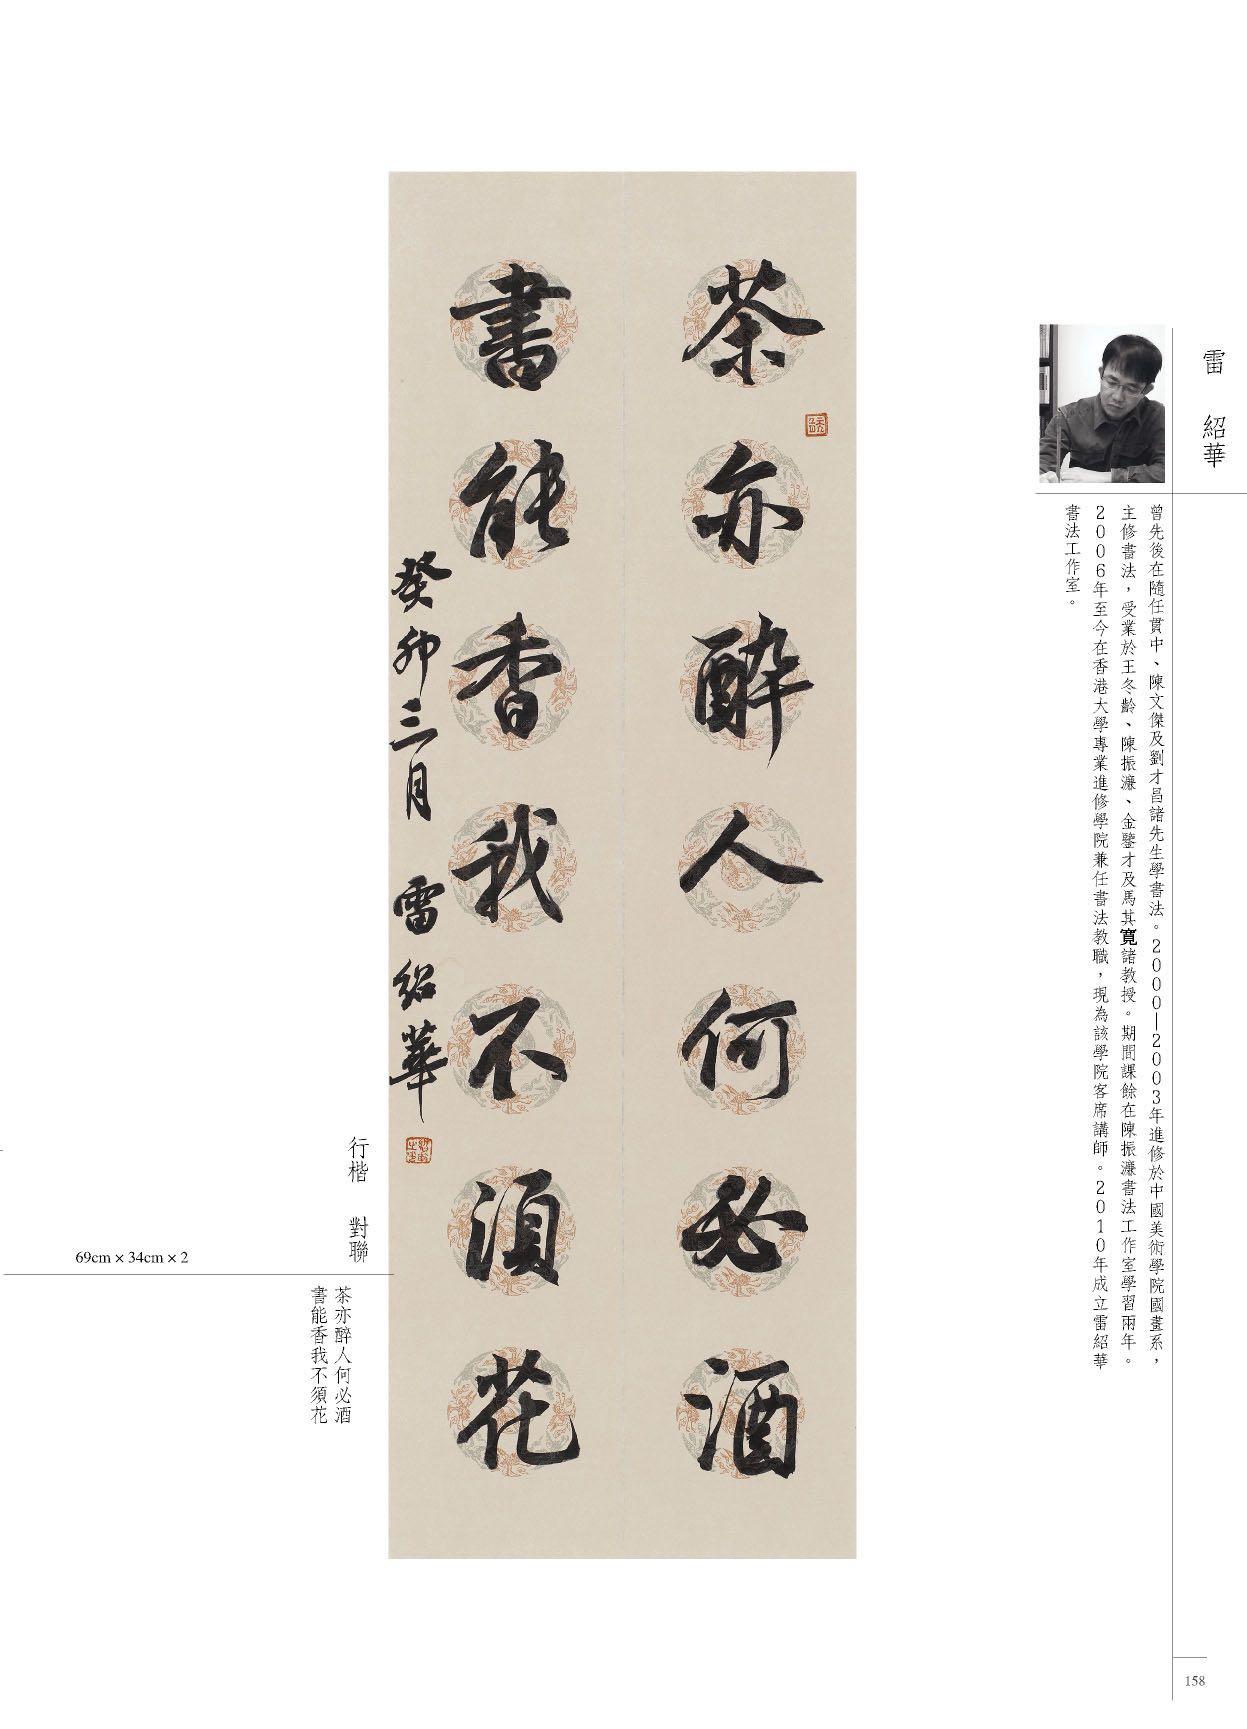 雷 紹華
曾先後在隨任貫中、陳文傑及劉才昌諸先生學書法。2000—2003年進修於中國美術學院國畫系，
主修書法，受業於王冬齡、陳振濂、金鑒才及馬其寬諸教授。期間課餘在陳振濂書法工作室學習兩年。
2006年至今在香港大學專業進修學院兼任書法教職，現為該學院客席講師。2010年成立雷紹華
書法工作室。
茶亦醉人何必酒
書能香我不須花
癸卯三月 雷紹華
行楷 對聯
69cm × 34cm × 2
茶亦醉人何必酒
書能香我不須花
158